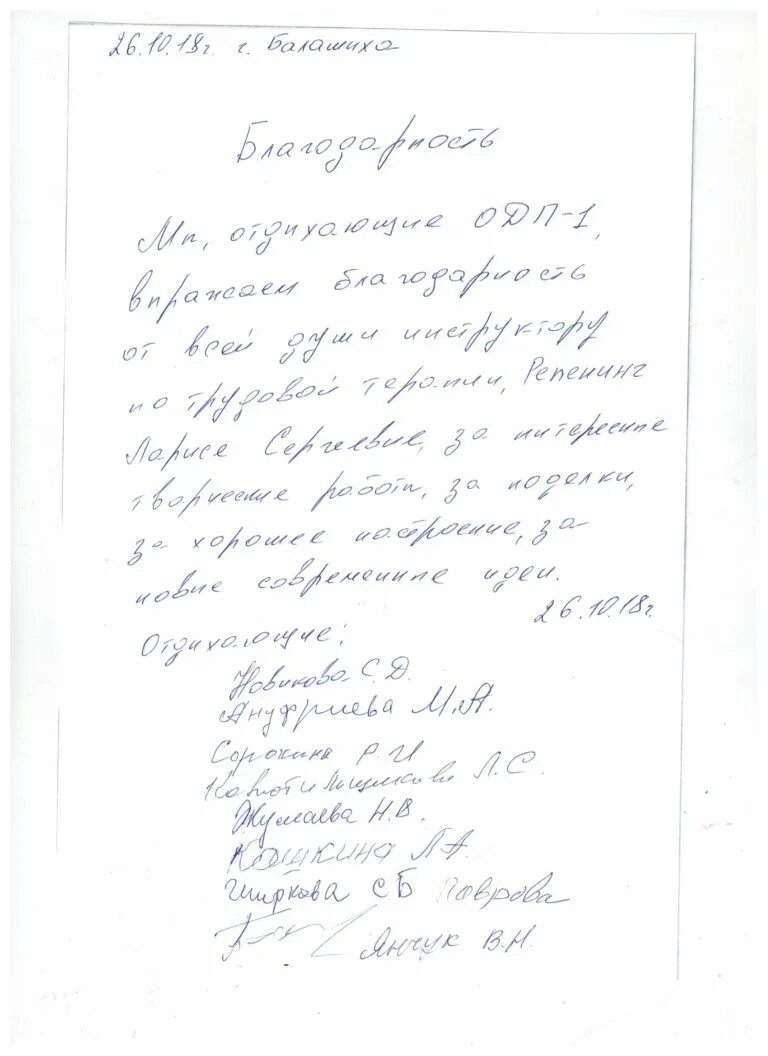 26.10.18г. г. Балашиха
Благодарность
Мы, отдыхающие ОДП-1,
выражаем благодарность
от всей души инструктору
по трудовой терапии, Репенинг
Ларисе Сергеевне, за интересные
творческие работы, за поделки,
за хорошее настроение, за
новые современные идеи.
26.10.18г.
Отдыхающие:
Новикова С.Д.
Ануфриева М.А.
Сорокина Р.И
Л.С.
Жумаева Н.В.
Кошкина Л А.
СБ Лаврова
Янчук В.Н.